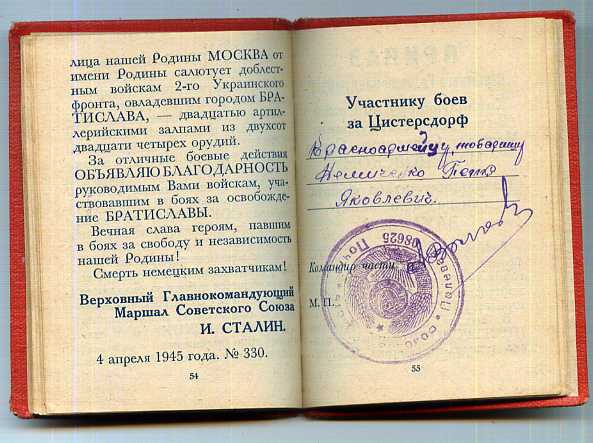 лица нашей Родины МОСКВА от
имени Родины салютует доблест-
ным войскам 2-го Украинского
фронта, овладевшим городом БРА-
ТИСЛАВА, — двадцатью артил-
лерийскими залпами из двухсот
двадцати четырех орудий.
За отличные боевые действия
ОБЪЯВЛЯЮ БЛАГОДАРНОСТЬ
руководимым Вами войскам, уча-
ствовавшим в боях за освобожде-
ние БРАТИСЛАВЫ.
Вечная слава героям, павшим
в боях за свободу и независимость
нашей Родины!
Смерть немецким захватчикам!
Верховный Главнокомандующий
Маршал Советского Союза
И. СТАЛИН.
4 апреля 1945 года. № 330.
54
Участнику боев
за Цистерсдорф
Красноармейцу, товарищу
Яковлевич.
Командир части
М. П.
08625
55